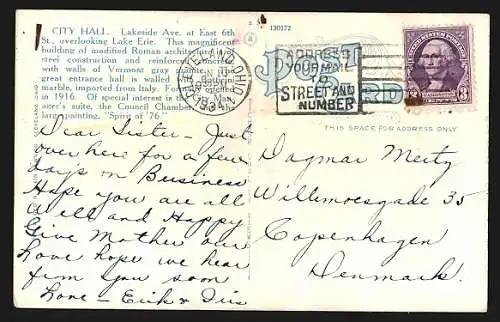 CITY HALL. Lakeside Ave. at East 6th
St., overlooking Lake Erie. This magnificent
building of modified Roman architecture
steel construction and reinforced concrete
with walls of Vermont gray
great entrance hall is walled
marble, imported from Italy.
in 1916. Of special interest is the
suite, the Council Chamber
large painting, "Spirit of '76."
A
130172
CLEVELAND, OHIO
ADDRESS
YOUR MAIL
TO
STREET AND
NUMBER
UNITED STATES POSTAGE
3 3
POST CARD
THIS SPACE FOR ADDRESS ONLY
Dear Sister - Just
over here for a few
days on Business
Hope you are all
Well and Happy
Give Mother our
Love hope we hear
from you soon
Love - Erik & Iris
Dagmar Mertz
Willemoesgade 35
Copenhagen
Denmark.